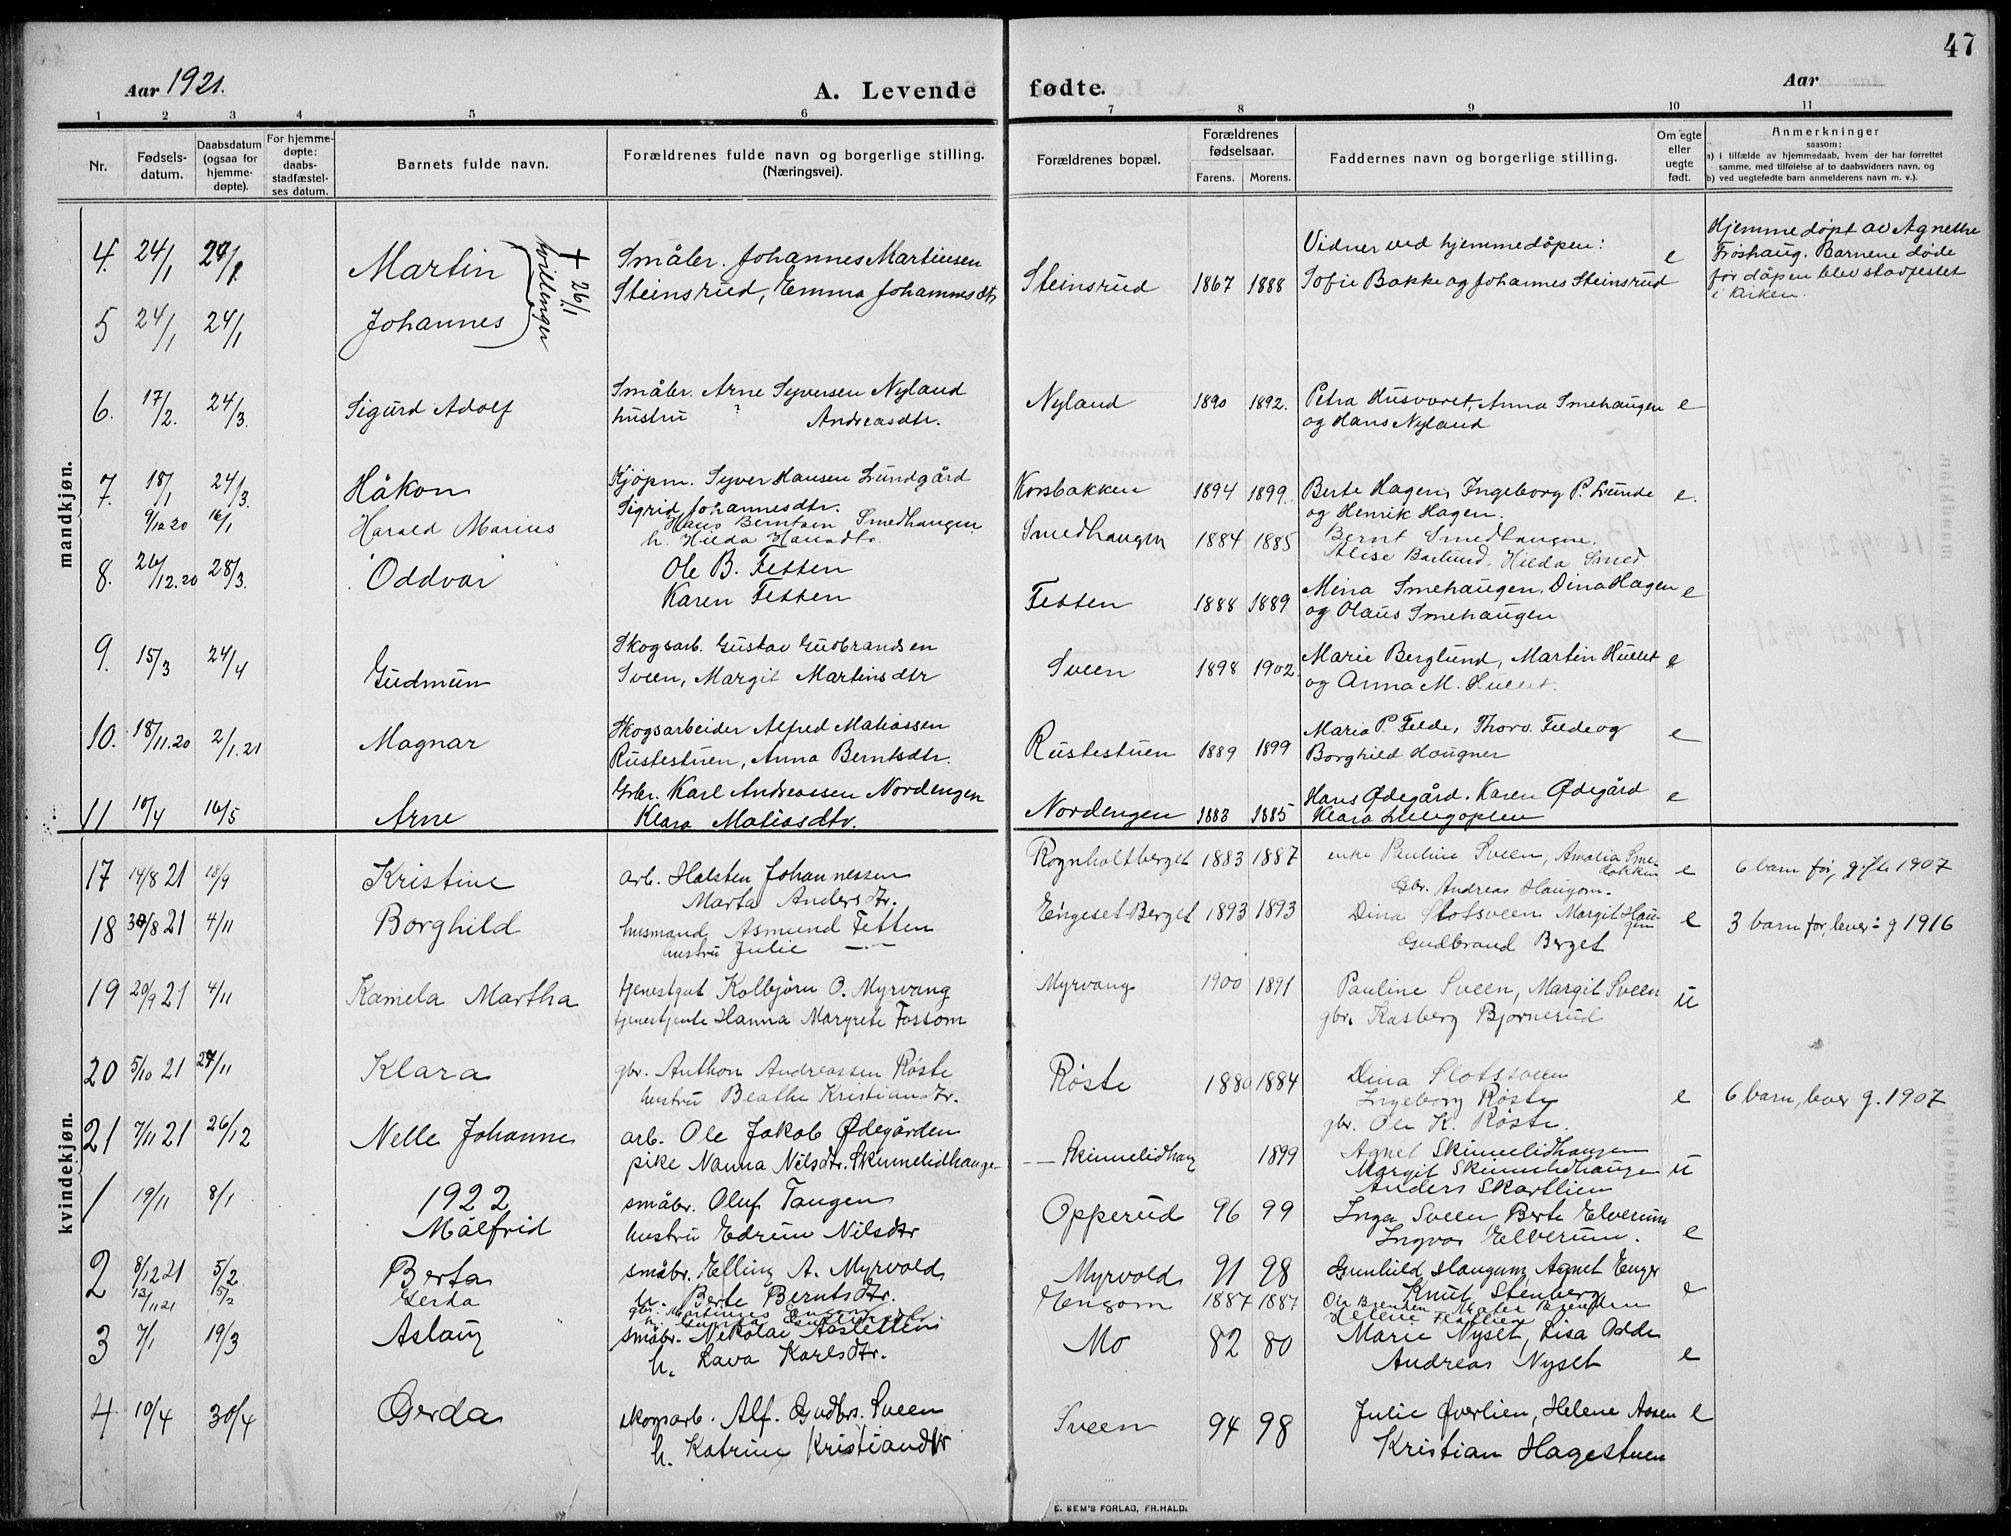 47
Aar 1921.
A. Levende fødte.
Aar
1 2 3 4 5 6 7 8 9 10 11
Nr.
Fødsels-
datum.
Daabsdatum
(ogsaa for
hjemme-
døpte).
For hjemme-
døpte:
daabs-
stadfæstel-
ses datum.
Barnets fulde navn.
Forældrenes fulde navn og borgerlige stilling.
(Næringsvei).
Forældrenes bopæl.
Forældrenes
fødselsaar.
Farens. Morens.
Faddernes navn og borgerlige stilling.
Om egte
eller
uegte
født.
Anmerkninger
saasom:
a) i tilfælde av hjemmedaab, hvem der har forrettet
samme, med tilføielse af to daabsvidners navn, og
b) ved uegtefødte barn anmelderens navn m. v.).
mandkjøn.
4. 24/1 24/1 Martin
tvillinger † 26/1
Småbr. Johannes Martinsen
Steinsrud, Emma Johannesdtr
Steinsrud 1867 1888
Vidner ved hjemmedåpen:
Sofie Bakke og Johannes Steinsrud
e
Hjemmedøpt av Agnethe
Froshaug. Barnene døde
før dåpen blev stadfestet
i kirken.
5 24/1 24/1 Johannes
6. 17/2. 24/3. Sigurd Adolf
Småbr. Arne Syversen Nyland
hustru ? Andreasdtr.
Nyland 1890 1892.
Petra Husvoret, Anna Smehaugen
og Hans Nyland
e
7. 18/1 24/3. Håkon
Kjøpm. Syver Hansen Lundgård
Sigrid Johannesdtr.
Korsbakken 1894 1899.
Berte Hagen, Ingeborg P. Lunde
og Henrik Hagen.
e.
9/12 20 16/1 Harald Marius
Hans Berntsen Smedhaugen
h. Hilda Hansdtr.
Smedhaugen 1884 1885
Bernt Smedhaugen.
Alise Baslund, Hilda Smed
8. 26/12.20 28/3. Oddvar
Ole B. Fetten
Karen Fetten
Fetten 1888 1889
Mina Smehaugen, Dina Hagen
og Olaus Smehaugen
e
9. 15/3 24/4 Gudmun
Skogsarb. Gustav Gudbrandsen
Sveen, Margit Martinsdtr
Sveen 1898 1902.
Marie Berglund, Martin Hullet
og Anna M. Hullet.
e
10. 18/11.20 2/1.21 Magnar
Skogsarbeider Alfred Matiassen
Rustestuen, Anna Berntsdtr.
Rustestuen 1889 1899
Maria P. Felde, Thorv. Felde og
Borghild Haugner
e
11 10/4 16/5 Arne
Gbr. Karl Andreassen Nordengen
Klara Matiasdtr.
Nordengen 1883 1885
Hans Ødegård. Karen Ødegård
Klara
e
kvindekjøn.
17 14/8 21 18/9 Kristine
arb. Halsten Johannessen
Marta Andersdtr.
Rognholtberget 1883 1887
enke Pauline Sveen, Amalia Sme-
bakken
Gbr. Andreas Haugom.
e
6 barn før, gifte 1907
18 30/8 21 4/11 Borghild
husmand Asmund Fetten
hustru Julie —"—
Engeset Berget 1893 1893
Dina Slotsveen Margit Hau-
gen
Gudbrand Berget
e
3 barn før, lever: g 1916
19 20/9 21 4/11 Kamela Martha
tjenestgut Kolbjørn O. Myrvang
tjenestjente Hanna Margrete Fossom
Myrvang 1900 1891
Pauline Sveen, Margit Sveen
gbr. Kasberg Bjørnerud
u
20 5/10 21 27/11 Klara
gbr. Anthon Andreassen Røste
hustru Beathe Kristiansdtr.
Røste 1880 1884
Dina Slotssveen
Ingeborg Røste
gbr. Ole K. Røste.
e
6 barn, lever g. 1907
21 7/11 21 26/12 Nelle Johanne
arb. Ole Jakob Ødegården
pike Nanna Nilsdtr. Skinnelidhauge
Skinnelidhaug 1899
Agnet Skinnelidhaugen
Margit Skinnelidhaugen
Anders Skartlien
u
1922
1 19/11 8/1 Målfrid
småbr. Oluf Tangen
hustru Edrun Nilsdtr
Opperud 96 99
Inga Sveen, Berte Elverum
Ingvar Elverum.
e
2 8/12 21 5/2 Berta
småbr. Elling A. Myrvold
h. Berte Berntsdtr.
Myrvold 91 98
Gunhild Haugum, Agnet Enger
Knut Stenberg
e
12/11 21 5/2 Gerda
gbr. Martinus Engom
h. Gunda
Engom 1887 1887
Ole Brenden
Helene
3 7/1 19/3 Aslaug
småbr. Nikolai Aasletten
h. Lava Karlsdtr.
Mo 82 80
Marie Nyset, Lisa Odde
Andreas Nyset
e
4 10/4 30/4 Gerda
skogsarb. Alf. Gudbrs. Sveen
h. Katrine Kristiansdtr
Sveen 94 98
Julie Øverlien, Helene Aasen
Kristian Hagestuen
e
E. SEM'S FORLAG, FR.HALD.